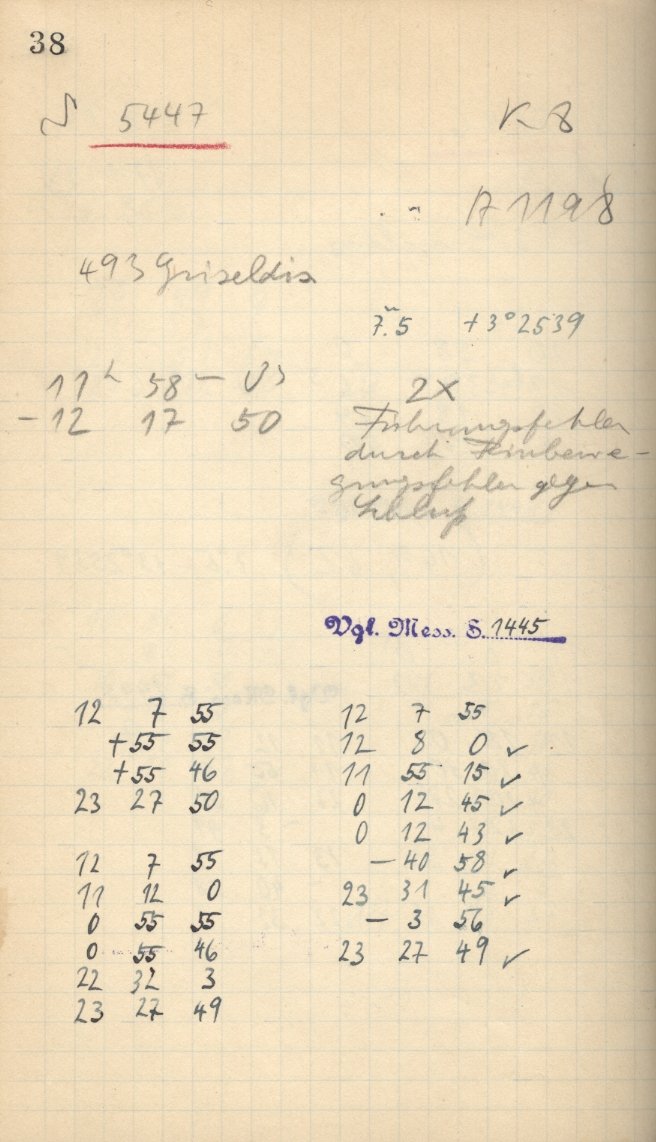 38
5447
K 8
A 1198
493 Griseldis
7.ᵐ5 +3° 25 39
11ʰ 58ᵐ
−12 17 50
2x
Führungsfehler
durch Feinbewe-
gungsfehler gegen
Schluß
Vgl. Mess. S. 1445
12 7 55
+55 55
+55 46
23 27 50
12 7 55
11 12 0
0 55 55
0 55 46
22 32 3
23 27 49
12 7 55
12 8 0 ✓
11 55 15 ✓
0 12 45 ✓
0 12 43 ✓
− 40 58 ✓
23 31 45 ✓
− 3 56
23 27 49 ✓